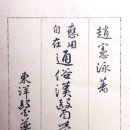 趙憲泳著
應用自在
通俗漢醫學
東洋醫藥